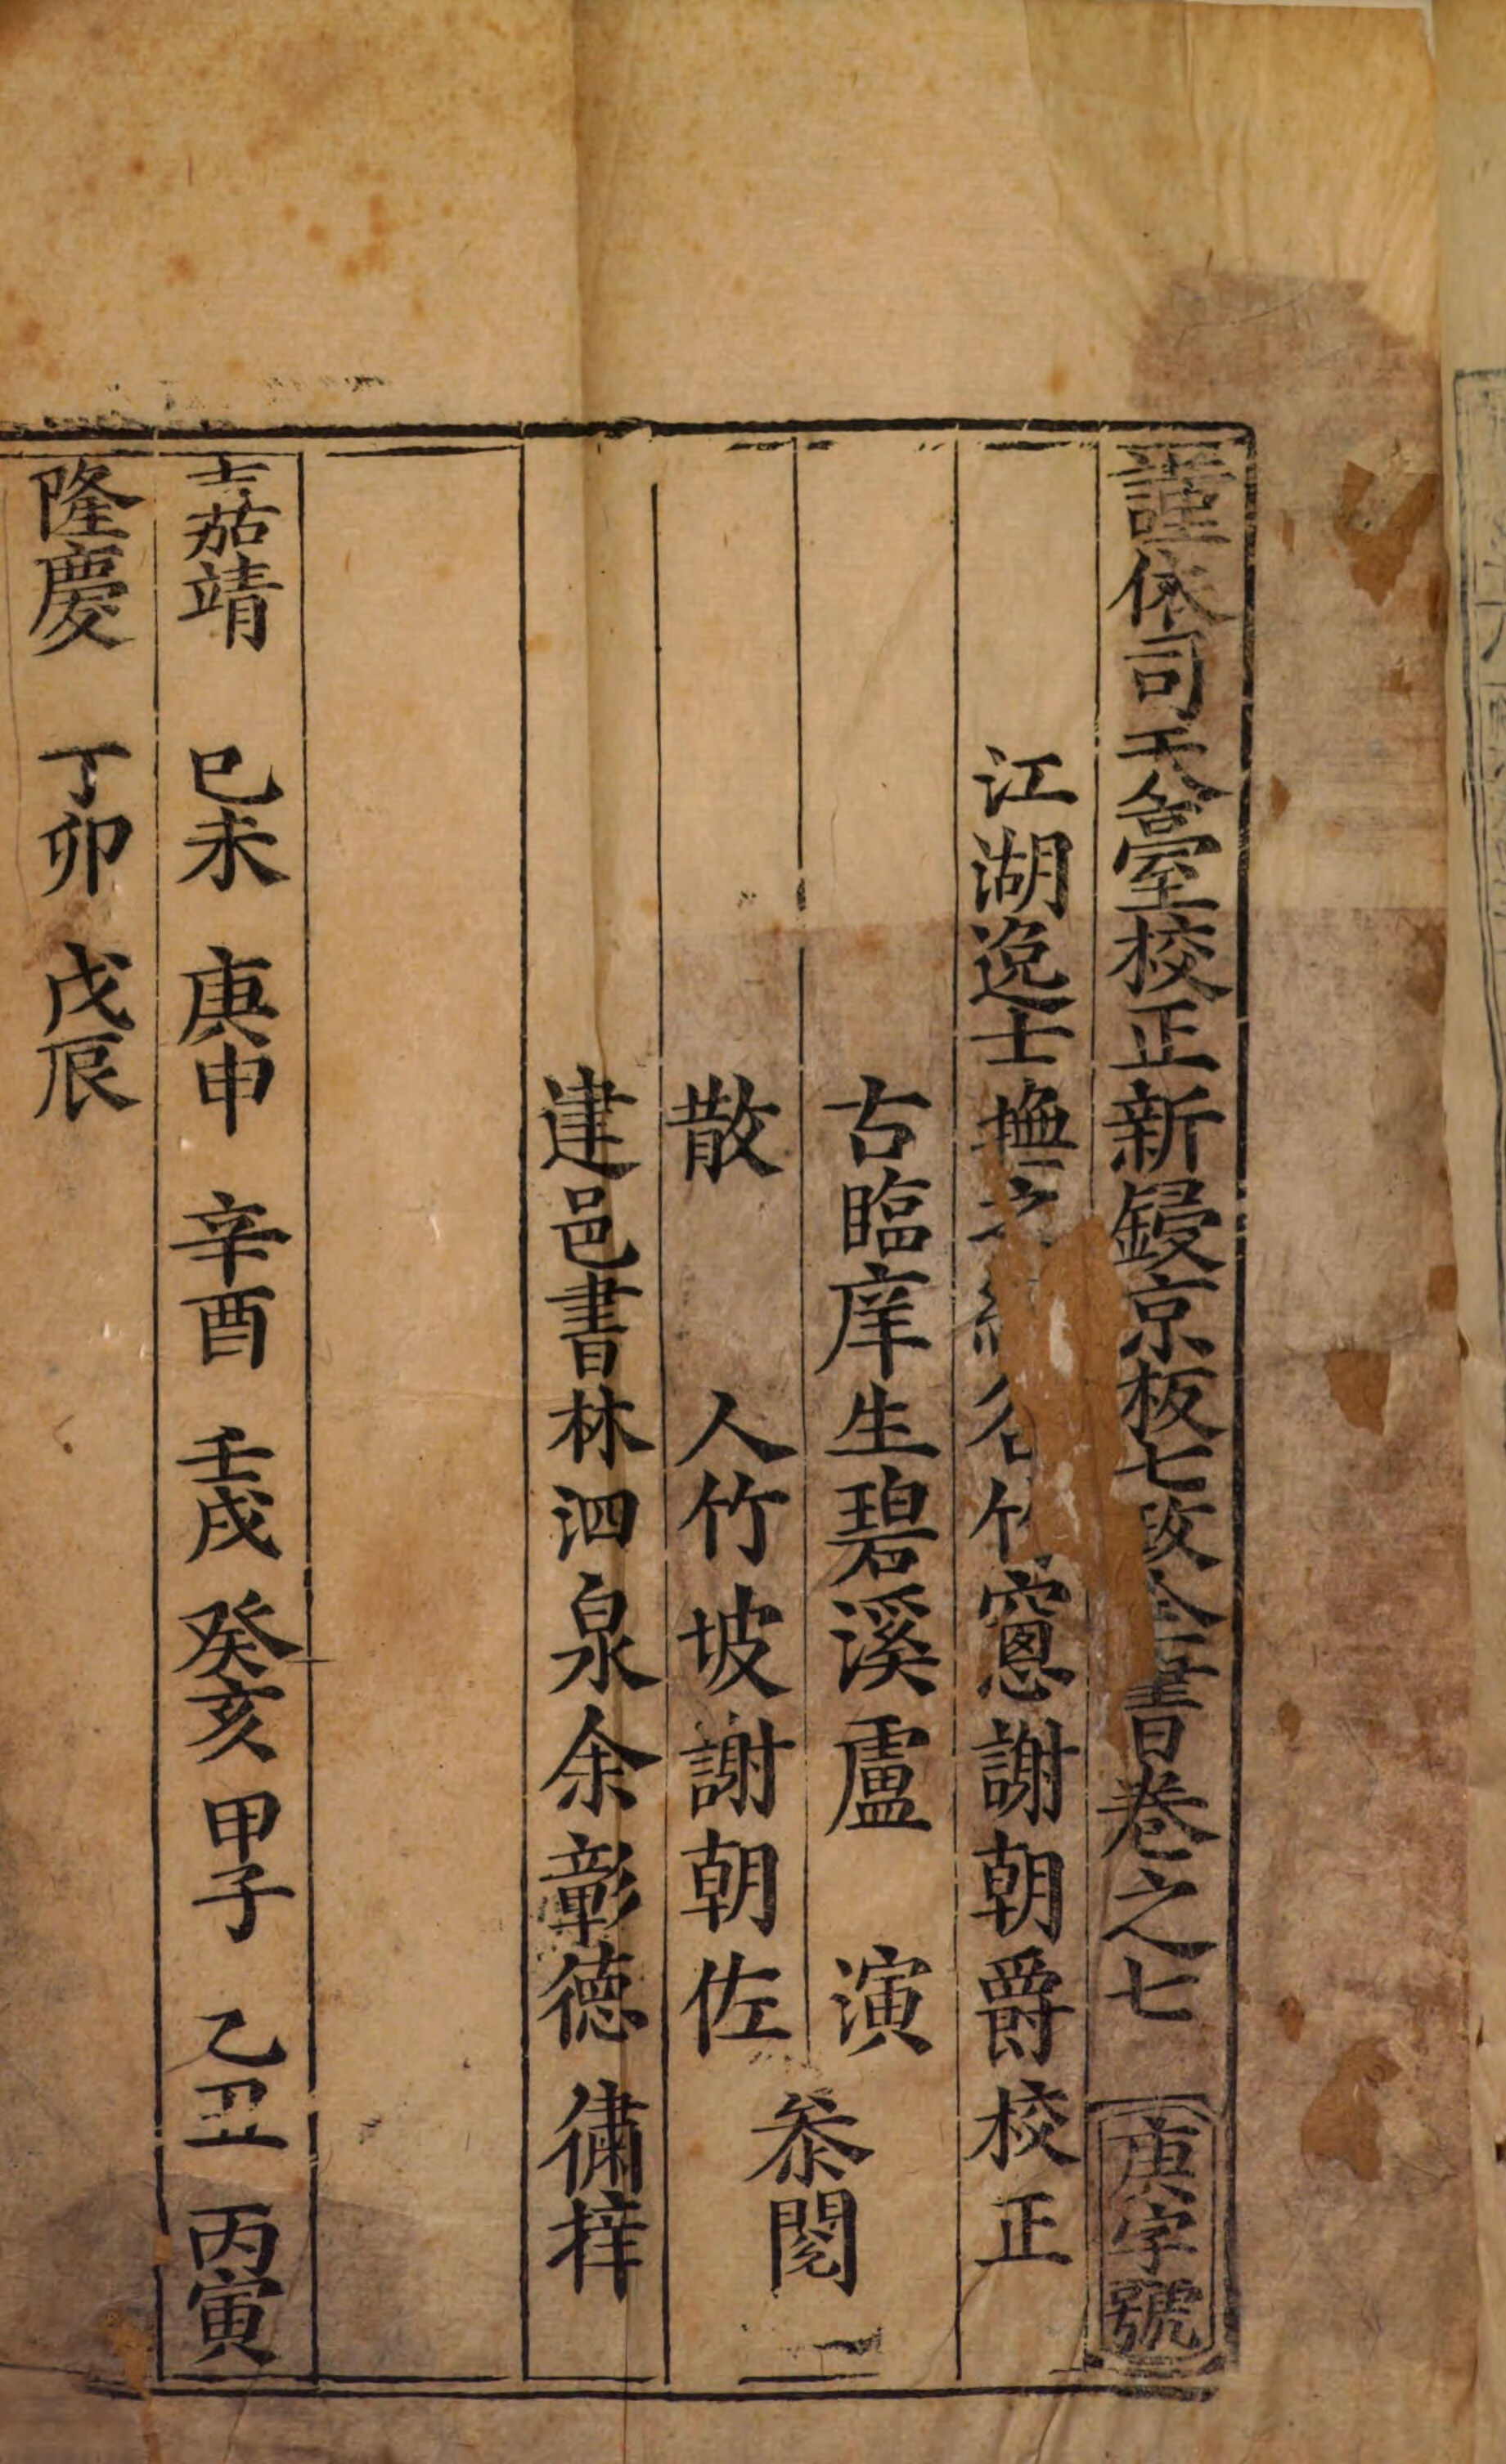 謹依司天臺校正新鋟京板七政全書卷之七 庚字號
江湖逸士撫 竹窻謝朝爵校正
古臨庠生碧溪盧 演
散 人竹坡謝朝佐
叅閱
建邑書林泗泉余彰德 繡梓
嘉靖 巳未 庚申 辛酉 壬戌 癸亥 甲子 乙丑 丙寅
隆慶 丁卯 戊辰